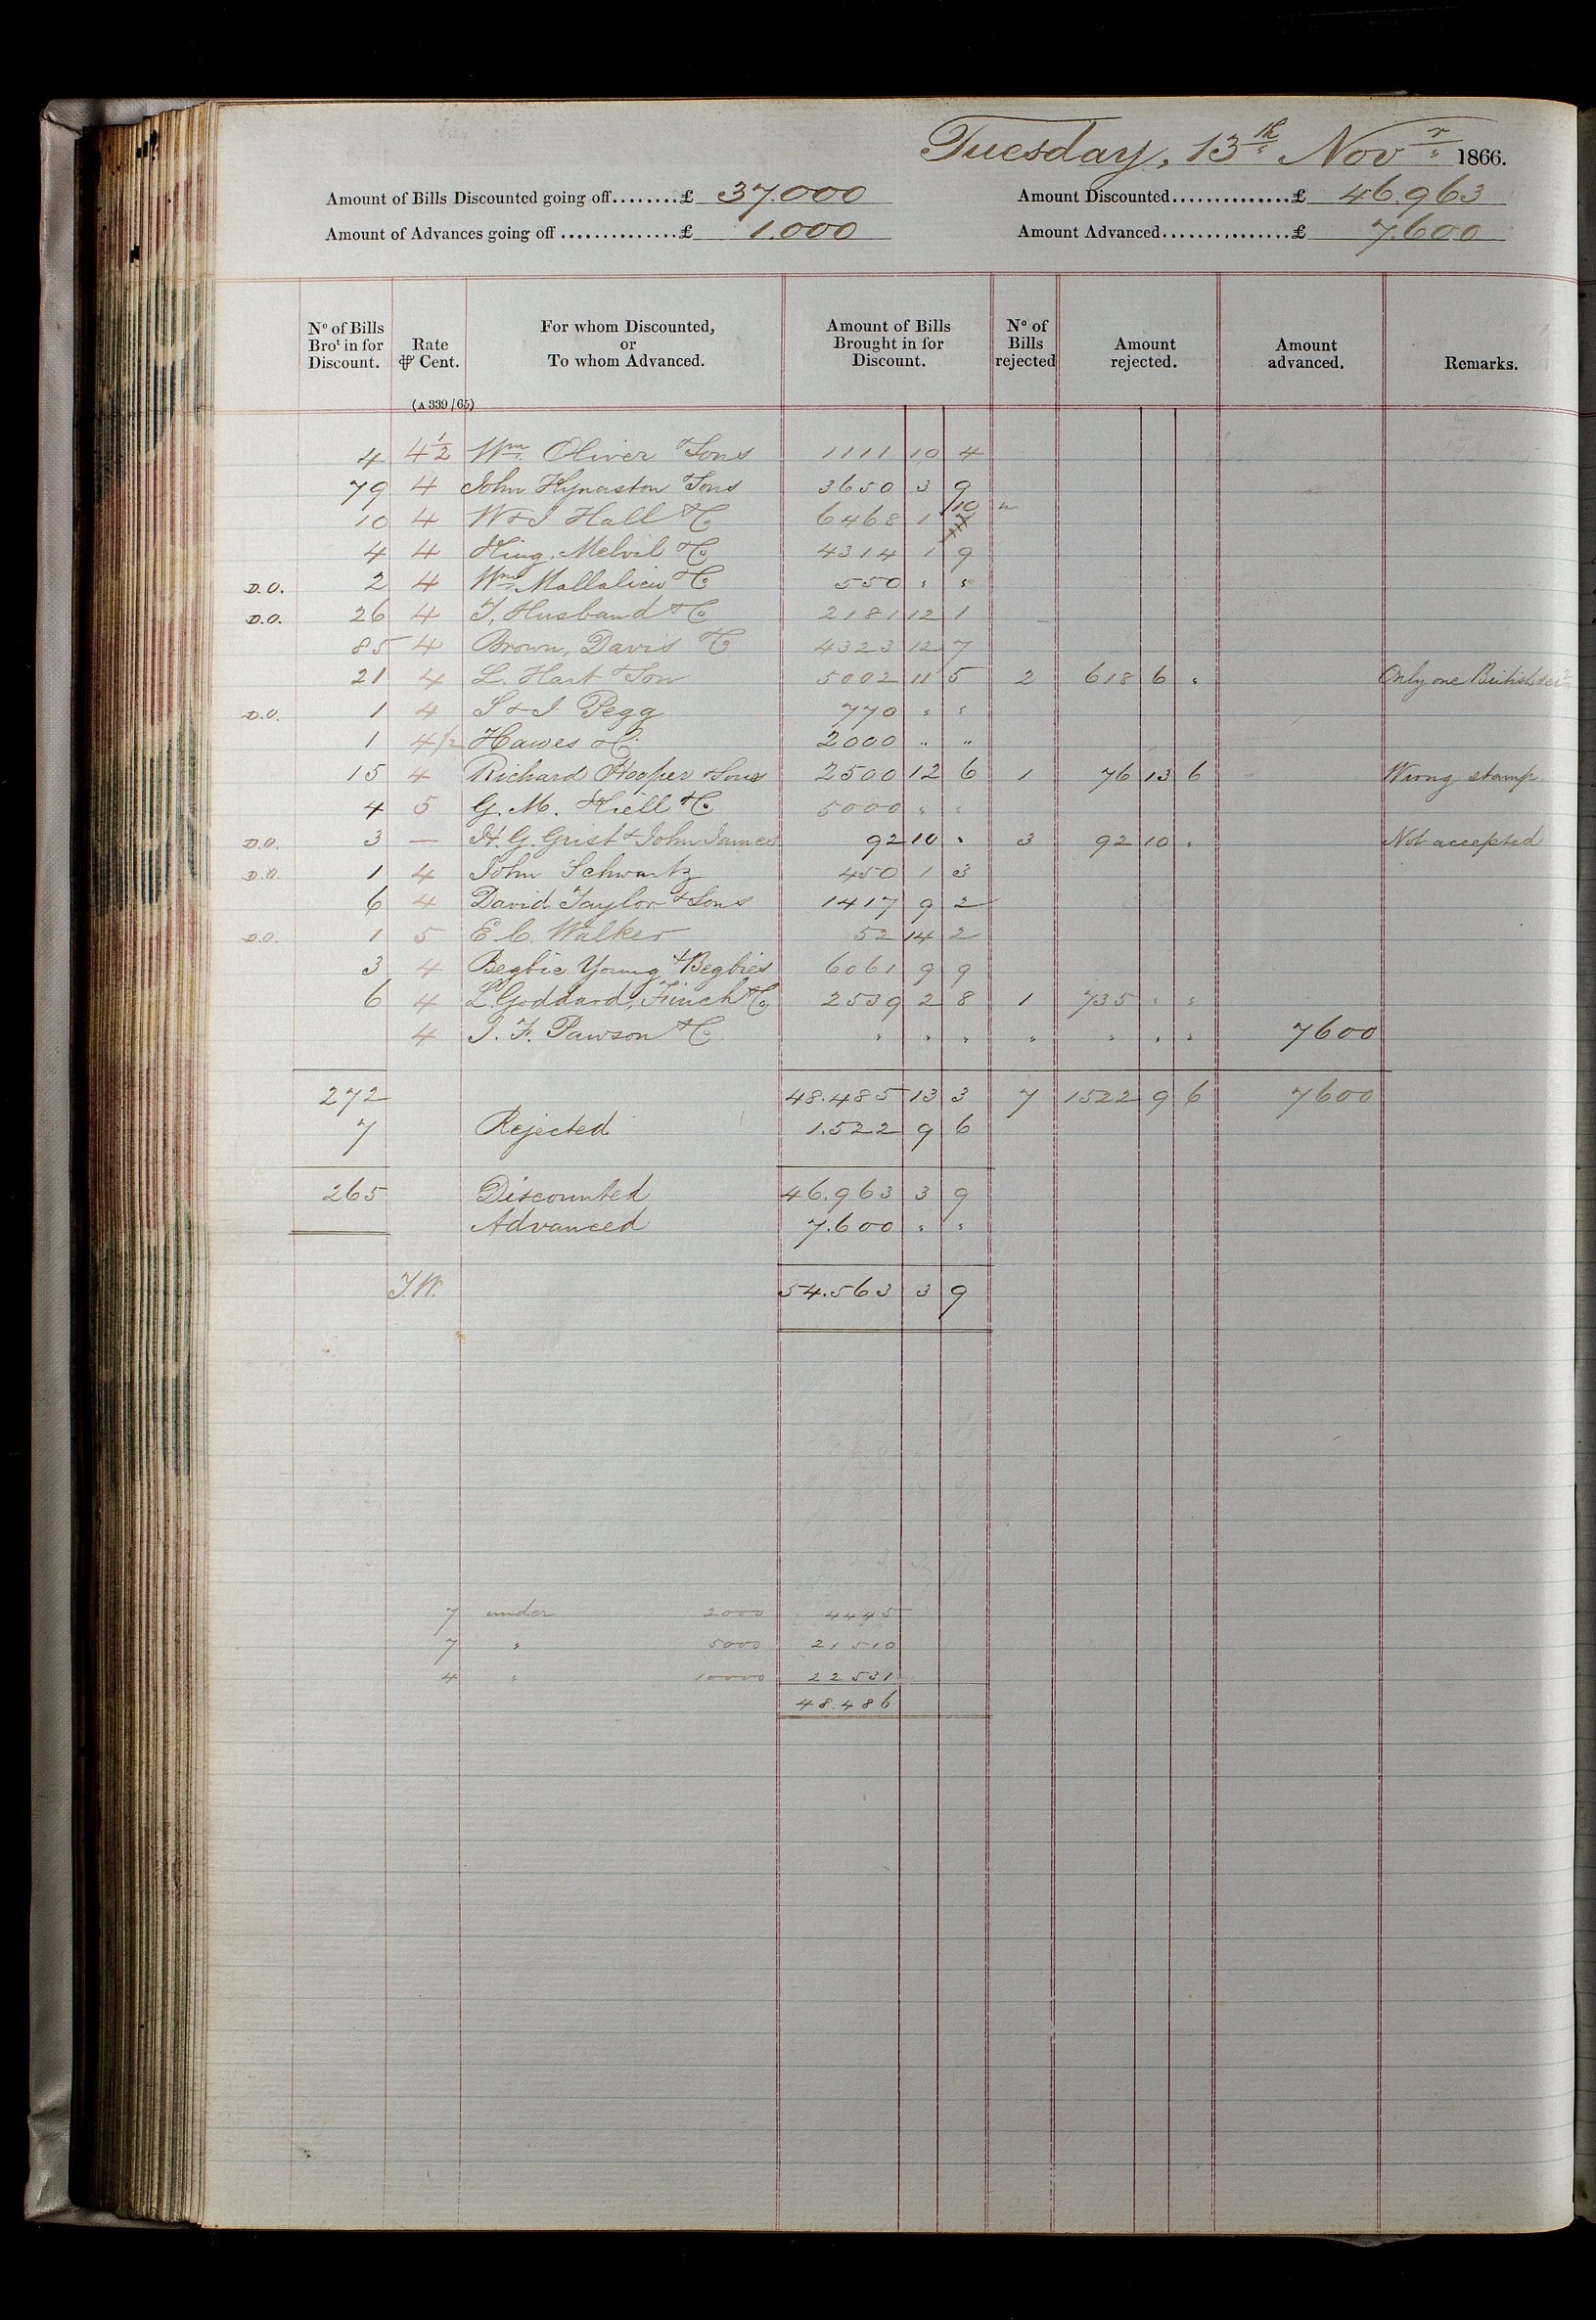 Tuesday, 13th Novr 1866.
Amount of Bills Discounted going off........£ 37.000 Amount Discounted..............£ 46.963
Amount of Advances going off..............£ 1.000 Amount Advanced...............£ 7.600
No of Bills Brot in for Discount. Rate ⅌ Cent. For whom Discounted, or To whom Advanced. Amount of Bills Brought in for Discount. No of Bills rejected Amount rejected. Amount advanced. Remarks.
(A 339/65)
4 4½ Wm. Oliver & Sons 1111 10 4
79 4 John Kynaston & Sons 3650 3 9
10 4 W & J Hall & Co 6468 1 10
4 4 King, Melvil & Co 4314 1 9
D.O. 2 4 Wm. Mallalieu & Co 550 " "
D.O. 26 4 T. Husband & Co 2181 12 1
85 4 Brown, Davis & Co 4323 12 7
21 4 L. Hart & Son 5002 11 5 2 618 6 " Only one British
D.O. 1 4 S & J Pegg 770 " "
1 4½ Hawes & Co 2000 " "
15 4 Richard Hooper & Sons 2500 12 6 1 76 13 6 Wrong stamp.
4 5 G. M. Kiell & Co 5000 " "
D.O. 3 — H. G. Grist & John James 92 10 " 3 92 10 " Not accepted
D.O. 1 4 John Schwartz 450 1 3
6 4 David Taylor & Sons 1417 9 2
D.O. 1 5 E C. Walker 52 14 2
3 4 Begbie Young & Begbies 6061 9 9
6 4 L Goddard, Finch & Co 2539 2 8 1 735 " "
4 J. F. Pawson & Co " " " " " " " 7600
272 48.485 13 3 7 1522 9 6 7600
7 Rejected 1.522 9 6
265 Discounted 46.963 3 9
Advanced 7.600 " "
J.W. 54.563 3 9
7 under 2000 4445
7 " 5000 21510
4 " 10000 22531
48.486